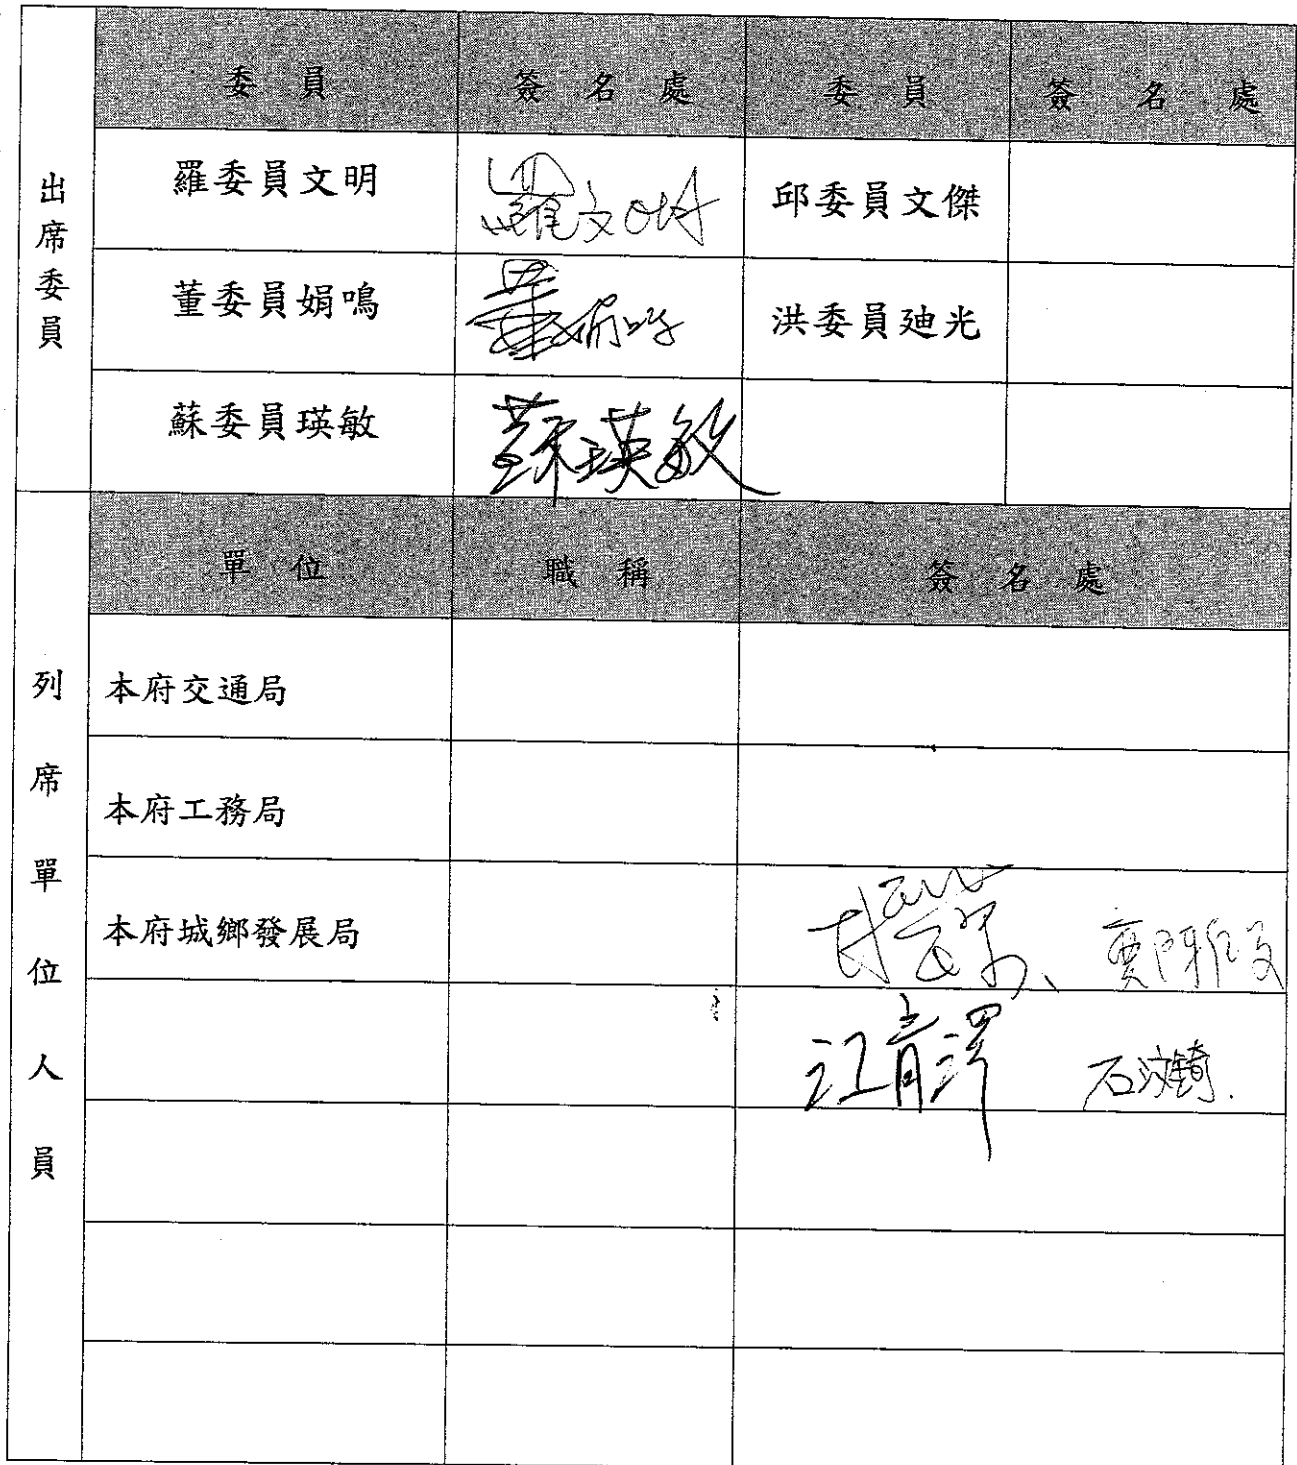 出席委員
委員 簽名處 委員 簽名處
羅委員文明 羅文明 邱委員文傑
董委員娟鳴 董娟鳴 洪委員迪光
蘇委員瑛敏 蘇瑛敏
列席單位人員
單位 職稱 簽名處
本府交通局
本府工務局
本府城鄉發展局
江育澤 石汶錡